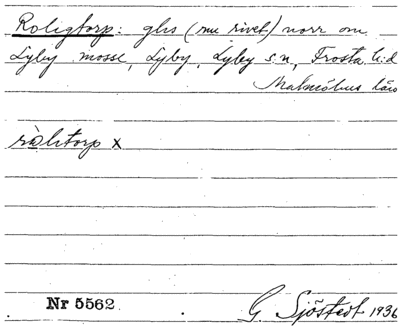 Roligtorp: ghs (nu rivet) norr om
Lyby mosse, Lyby, Lyby sn, Frosta h:d
Malmöhus län
ròlitorp x
Nr 5562
G. Sjöstedt 1936